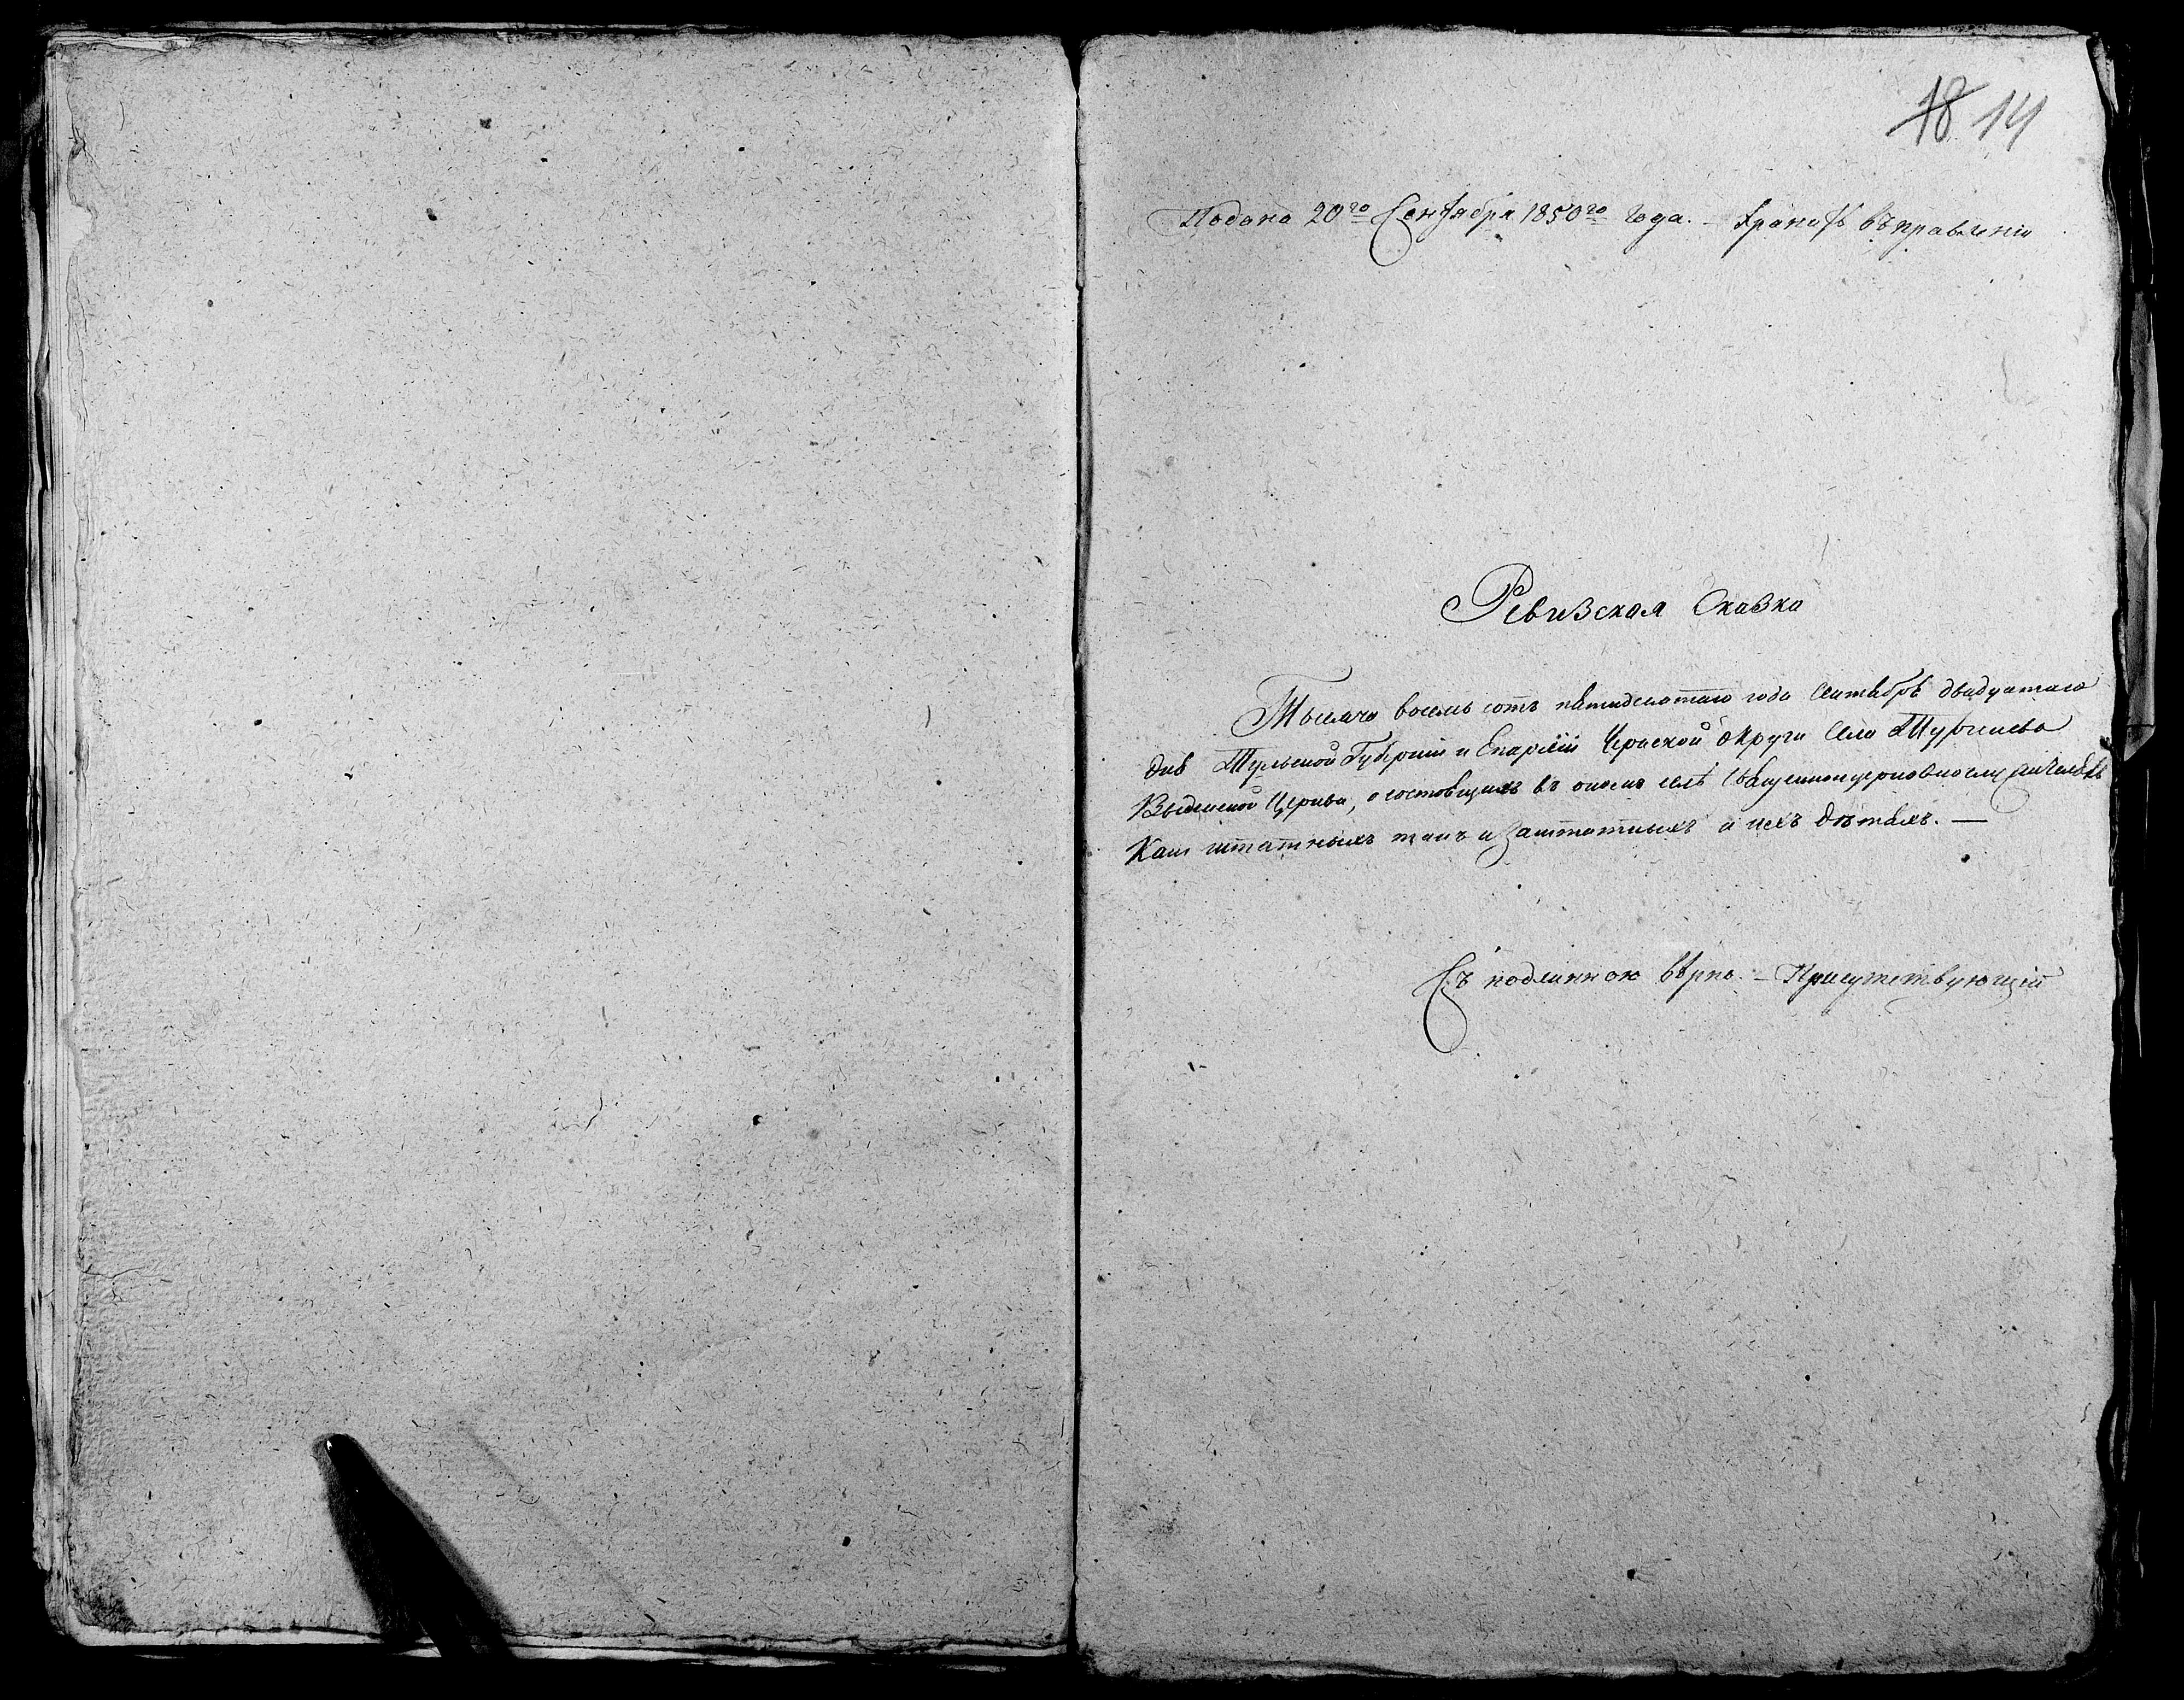 18 14
Подана 20го Сентября 1850го Года. – Хранить въ правленіи
Ревизская Сказка
Тысяча восемь сотъ пятидесятаго года Сентября двадцатаго
дня Тульской Губерніи и Епархіи Чернской округи Села Тургенева
Введенской Церкви, о состоящихъ въ ономъ селѣ Священноцерковнослужителяхъ
Какъ штатныхъ такъ и Заштатныхъ и ихъ дѣтяхъ. —
Съ подлинною вѣрно. – Присутствующій